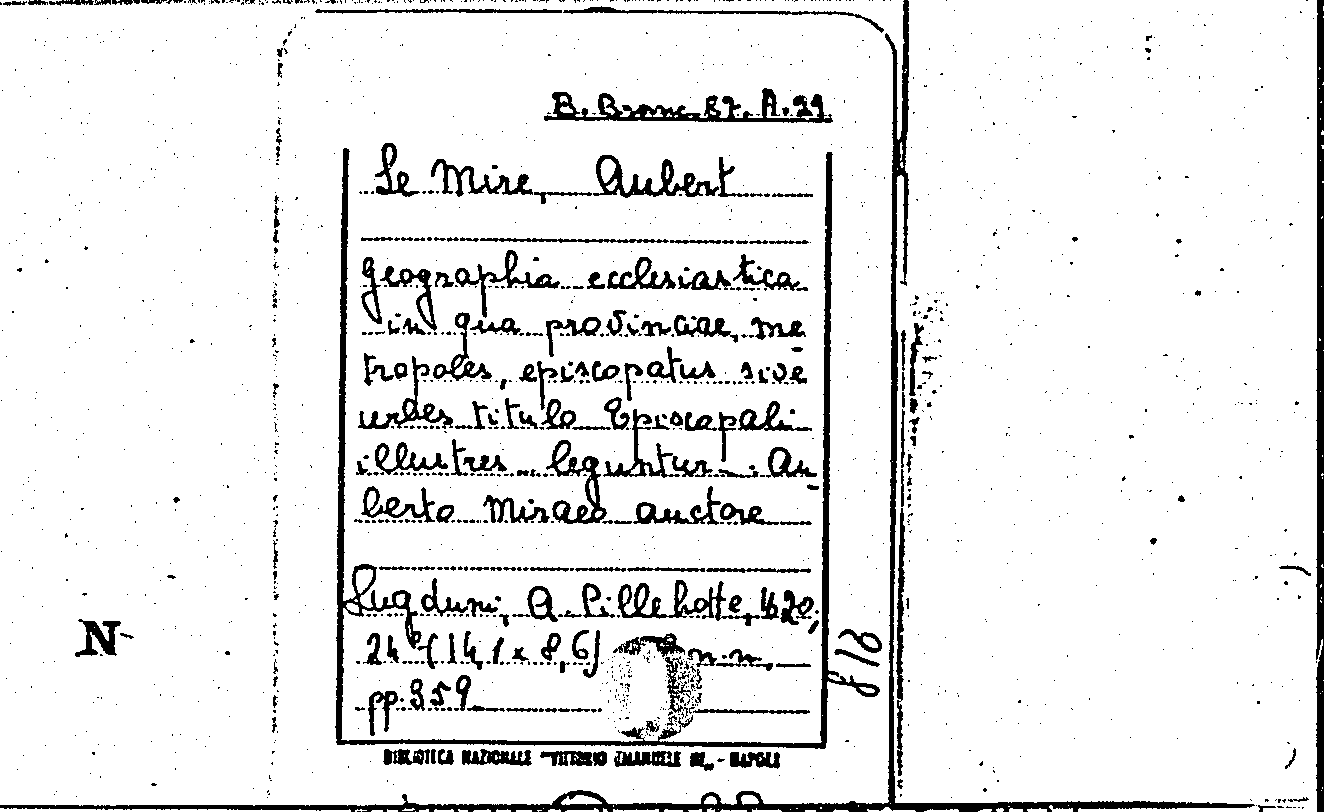 B. Branc. 87. A. 29
Le Mire, Aubert
geographia ecclesiastica
in qua provinciae, me
tropoles, episcopatus sive
urbes titulo Episcopali
illustres leguntur. Au
berto Miraeo auctore
Lugduni, A. Pillehotte, 1620;
24° (14,1 x 8,6) n.n.
pp. 359
818
N
BIBLIOTECA NAZIONALE "VITTORIO EMANUELE III" - NAPOLI